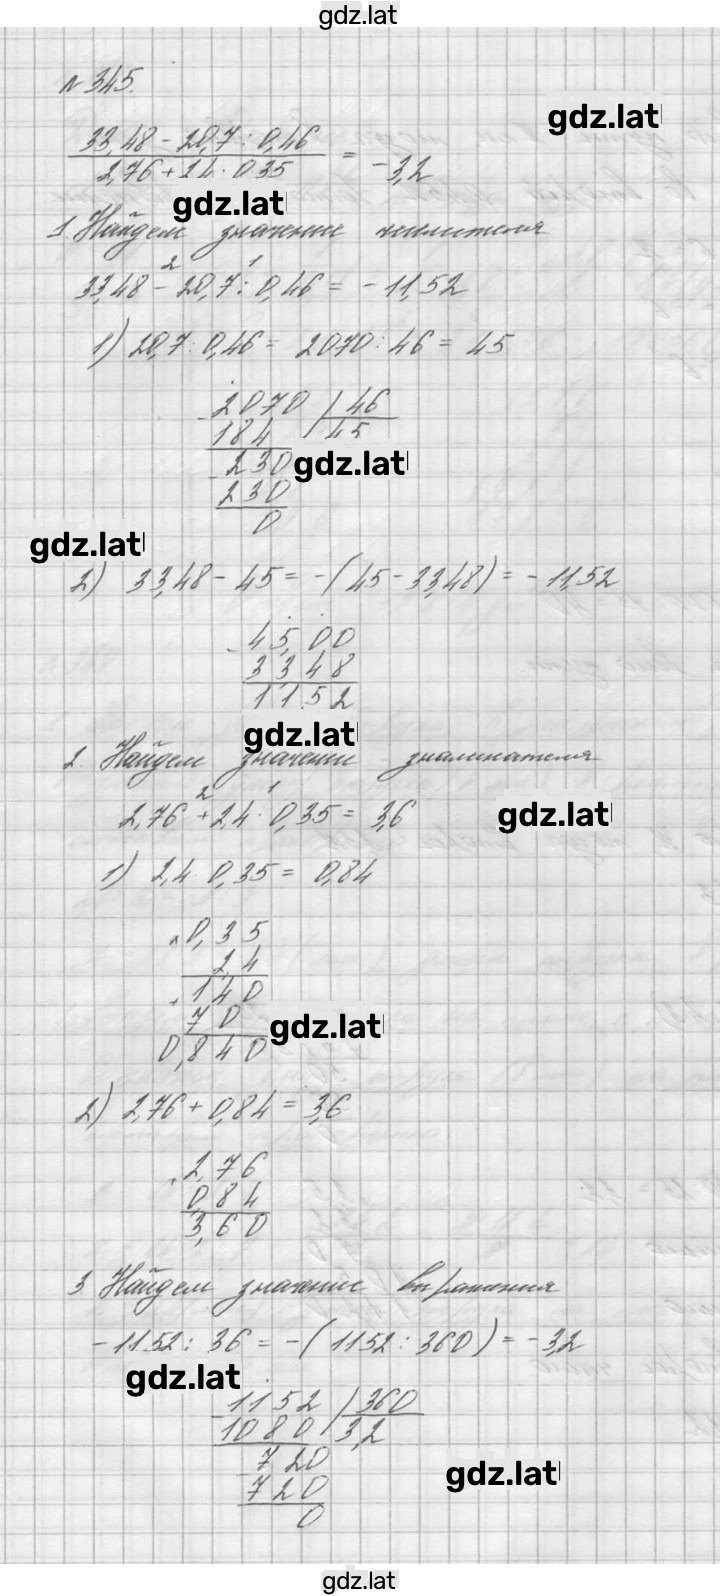 gdz.lat
№ 345.
gdz.lat
33,48 - 20,7 : 0,46
2,76 + 2,4 · 0,35
= -3,2
gdz.lat
1. Найдем значение числителя
2 1
33,48 - 20,7 : 0,46 = -11,52
1) 20,7 : 0,46 = 2070 : 46 = 45
2070 | 46
184 45
230 gdz.lat
230
0
gdz.lat
2) 33,48 - 45 = -(45 - 33,48) = -11,52
- 45,00
33 48
11,52
gdz.lat
2. Найдем значение знаменателя
2 1
2,76 + 2,4 · 0,35 = 3,6
gdz.lat
1) 2,4 · 0,35 = 0,84
× 0,35
2,4
+ 140
70
gdz.lat
0,840
2) 2,76 + 0,84 = 3,6
2,76
0,84
3,60
3 Найдем значение выражения
-11,52 : 3,6 = -(1152 : 360) = -3,2
gdz.lat
- 1152 | 360
1080 3,2
- 720
gdz.lat
720
0
gdz.lat